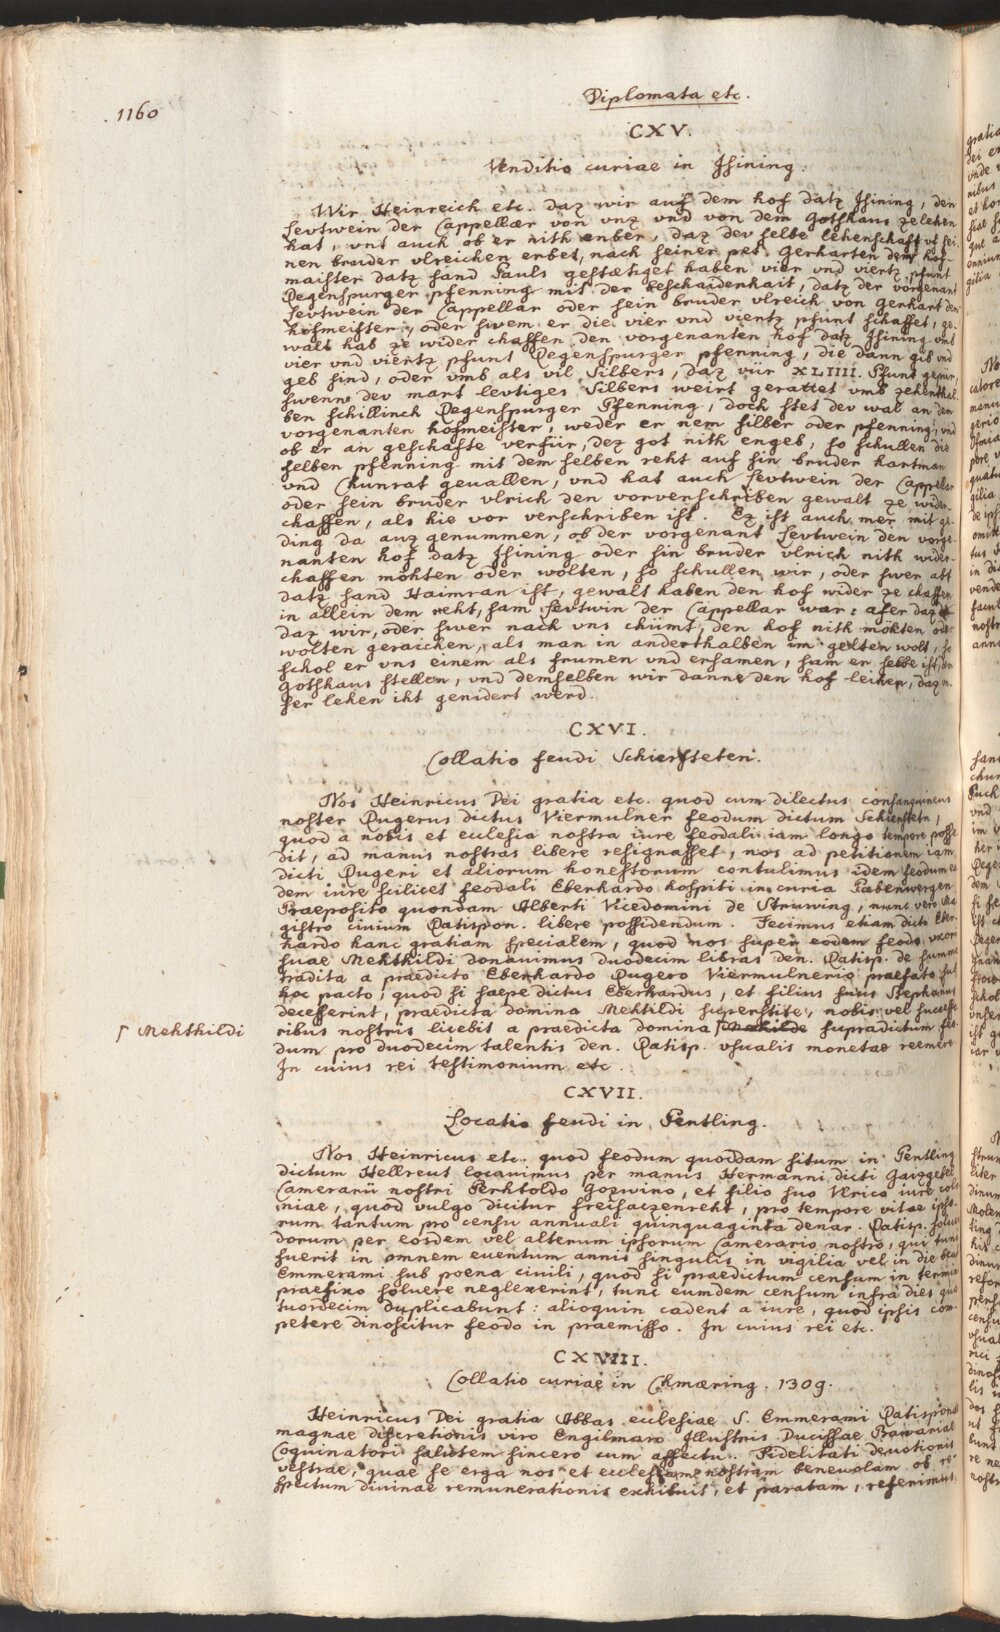 1160
Diplomata etc.
CXV.
Venditio curiae in Ihining.
Wir Heinreich etc. daz wir auf dem hof datz Ihining, den
Levtwein der Cappellær von vnz vnd von dem Gotshaus ze lehen
hat, vnt auch ob er nith enber, daz dev selbe lehenschaft vf sei-
nen bruder vlreichen erbet, nach seiner pet Gerharten dem hof-
maister datz sand Pauls gestætiget haben vier vnd viertz pfunt
Regenspurger pfenning mit der beschaidenhait, datz der vorgenant
Levtwein der Cappellar oder sein bruder vlreich von Gerhart dem
hofmeister, oder swem er die vier vnd viertz pfunt schaffet, ge-
walt hab ze wider chaffen den vorgenanten hof datz Ihining vmb
vier vnd viertz pfunt Regenspurger pfenning, die dann gib vnd
geb sind, oder vmb als vil Silbers, daz vür XLIIII. Pfunt gepür,
swenn dev mart levtiges Silbers weirt gerattet vmb zehenthal-
ben schillinch Regenspurger Pfenning, doch stet dev wal an dem
vorgenanten hofmeister, weder er nem silber oder pfenning, vnd
ob er an geschafte verfür, dez got nith engeb, so schullen die
selben pfenning mit dem selben reht auf sin bruder hartman
vnd Chunrat geuallen, vnd hat auch Levtwein der Cappellar
oder sein bruder vlrich den vorverschriben gewalt ze wider-
chaffen, als hie vor verschriben ist. Ez ist auch mer mit ge-
ding da auz genummen, ob der vorgenant Levtwein den vorge-
nanten hof datz Ihining oder sin bruder vlrich nith wider-
chaffen möhten oder wolten, so schullen wir, oder swer abt
datz sand Haimran ist, gewalt haben den hof wider ze chaffen
in allein dem reht, sam Levtwin der Cappellar war: afer daz
daz wir, oder swer nach vns chümt, den hof nith möhten oder
wolten geraichen, als man in anderthalben im gelten wolt, so
schol er vns einem als frumen vnd ersamen, sam er selbe ist, dem
Gotshaus stellen, vnd demselben wir danne den hof leihen, daz vn-
ser lehen iht genidert werd.
CXVI.
Collatio feudi Schierssteten.
Nos Heinricus Dei gratia etc. quod cum dilectus consanguineus
noster Rugerus dictus Viermulner feodum dictum Schierstetn,
quod a nobis et ecclesia nostra iure feodali iam longo tempore posse-
dit, ad manus nostras libere resignasset, nos ad petitionem iam
dicti Rugeri et aliorum honestorum contulimus idem feodum eo-
dem iure scilicet feodali Eberhardo hospiti in curia Pabenwergen
Praeposito quondam Alberti Vicedomini de Struwing, nunc vero Ma-
gistro civium Ratispon. libere possidendum. Fecimus etiam dicto Eber-
hardo hanc gratiam specialem, quod nos super eodem feodo uxori
suae Mehthildi donauimus duodecim libras den. Ratisp. de summa
tradita a praedicto Eberhardo Rugero Viermulnerio praefato sub
hoc pacto, quod si saepe dictus Eberhardus, et filius suus Stephanus
decesserint, praedicta domina Mehtildi superstite, nobis vel successo-
ribus nostris licebit a praedicta domina ſ supradictum feo-
dum pro duodecim talentis den. Ratisp. vsualis monetae reemere.
In cuius rei testimonium etc.
ſ Mehthildi
CXVII.
Locatio feudi in Pentling.
Nos Heinricus etc. quod feodum quoddam situm in Pentling
dictum Hellreut locauimus per manus Hermanni dicti Gaizgebel
Camerarii nostri Perhtoldo Gozwino, et filio suo Vlrico iure colo-
niae, quod vulgo dicitur freisaizenreht, pro tempore vitae ipso-
rum tantum pro censu annuali quinquaginta denar. Ratisp. soluen-
dorum per eosdem vel alterum ipsorum Camerario nostro, qui tunc
fuerit in omnem euentum annis singulis in vigilia vel in die beati
Emmerami sub poena ciuili, quod si praedictum censum in termino
praefixo soluere neglexerint, tunc eumdem censum infra dies qua-
tuordecim duplicabunt: alioquin cadent a iure, quod ipsis com-
petere dinoscitur feodo in praemisso. In cuius rei etc.
CXVIII.
Collatio curiae in Chmæring. 1309.
Heinricus Dei gratia Abbas ecclesiae S. Emmerami Ratispon.
magnae discretionis viro Engilmaro Illustris Ducissae Bawariae
Coquinatori salutem sincero cum affectu. Fidelitati deuotionis
vestrae, quae se erga nos et ecclesiam nostram beneuolam ob re-
spectum diuinae remunerationis exhibuit, et paratam, referimus